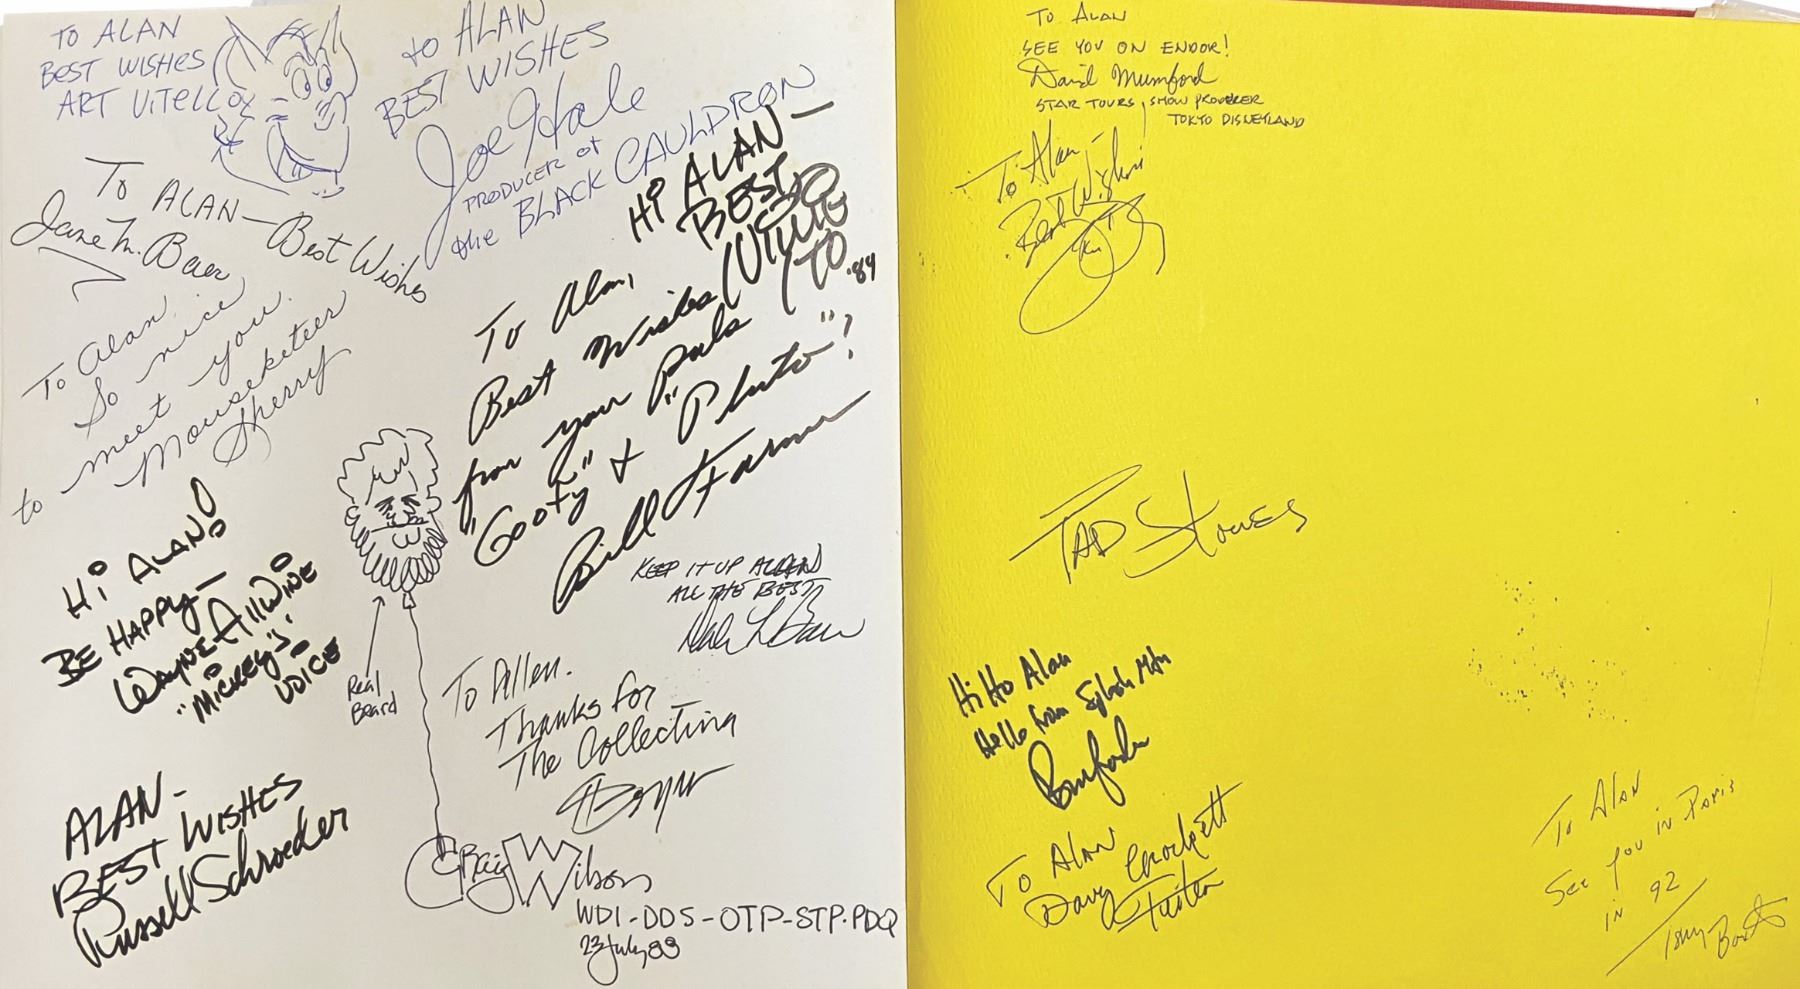 TO ALAN
BEST WISHES
ART VITELLO
to ALAN
BEST WISHES
Joe Hale
PRODUCER of
the BLACK CAULDRON
To ALAN—Best Wishes
Jane M. Baer
Hi ALAN—
BEST
WISHES
To Alan,
Best Wishes
from your Pals
"Goofy" & "Pluto"!
Bill Farmer
'84
To Alan.
So nice
to meet you.
Mouseketeer
Sherry
Hi ALAN!
BE HAPPY—
WAYNE AllWINE
"MICKEY'S"
VOICE
Real
Beard
KEEP IT UP
ALL THE BEST
Dale L Baer
To Allen.
Thanks for
The Collecting
ALAN-
BEST WISHES
Russell Schroeder
Craig Wilson
WDI-DDS-OTP-STP.PDQ
23 July 89
TO ALAN
SEE YOU ON ENDOR!
David Mumford
STAR TOURS, SHOW PRODUCER
TOKYO DISNEYLAND
To Alan-
Best Wishes
TAD Stones
Hi Ho Alan
Hello from Splash Mtn
To Alan
Davy Crockett
To Alan
See you in Paris
in 92
Tony Baxter